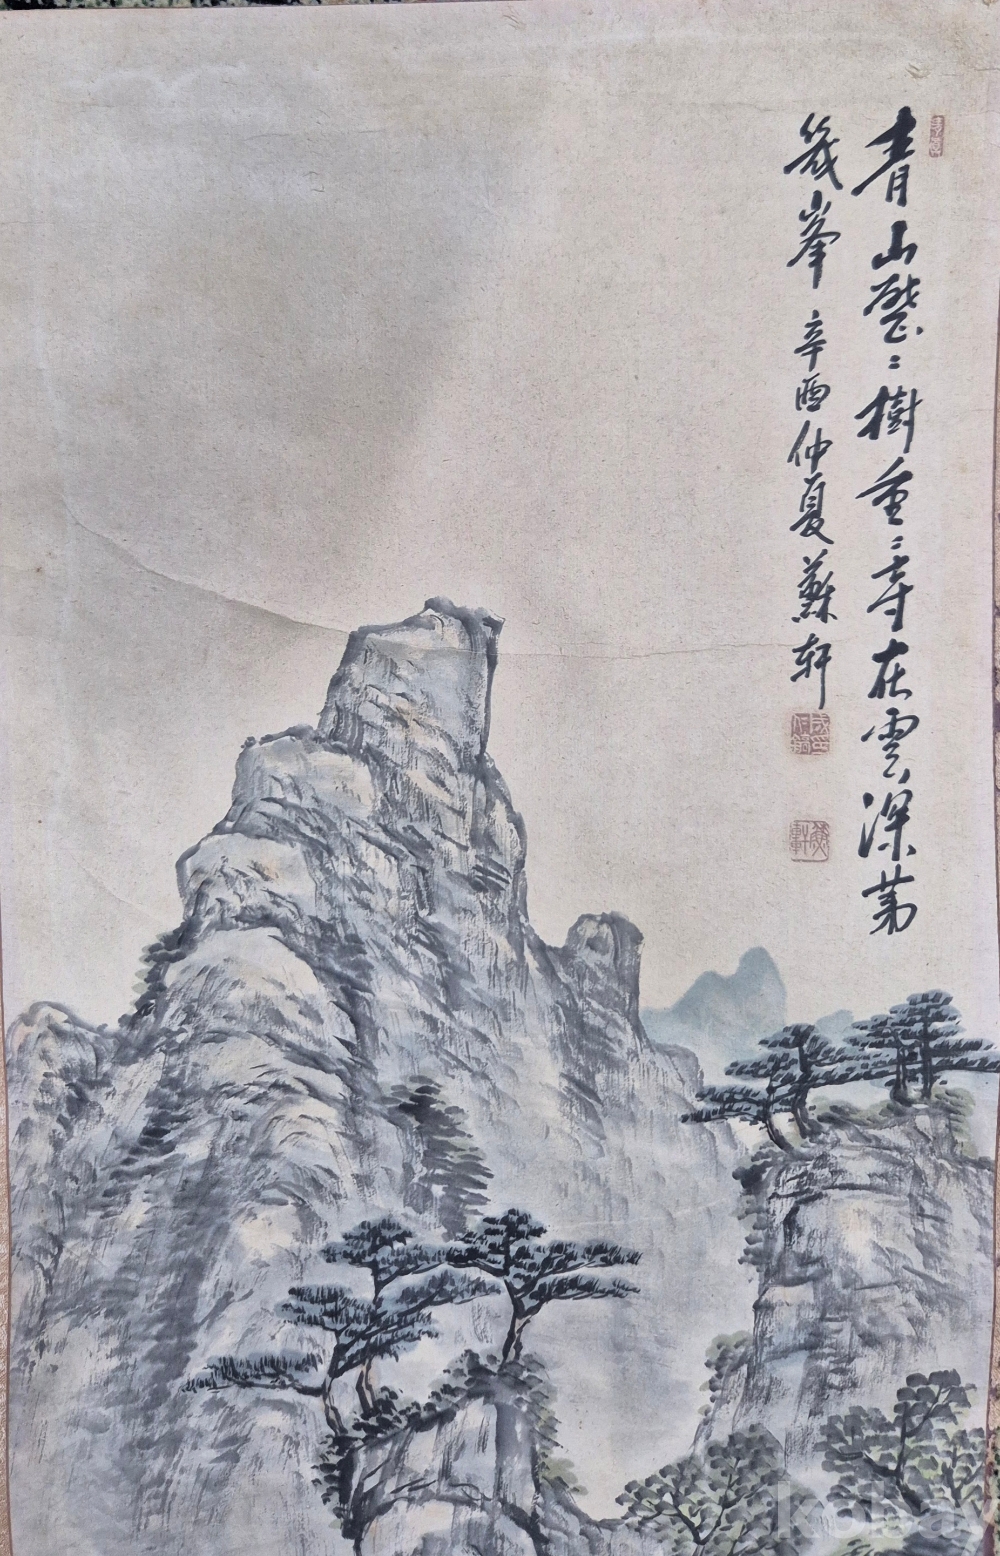 青山歷〻樹重〻寺在雲深第
幾峯 辛酉仲夏蘇軒
kobay